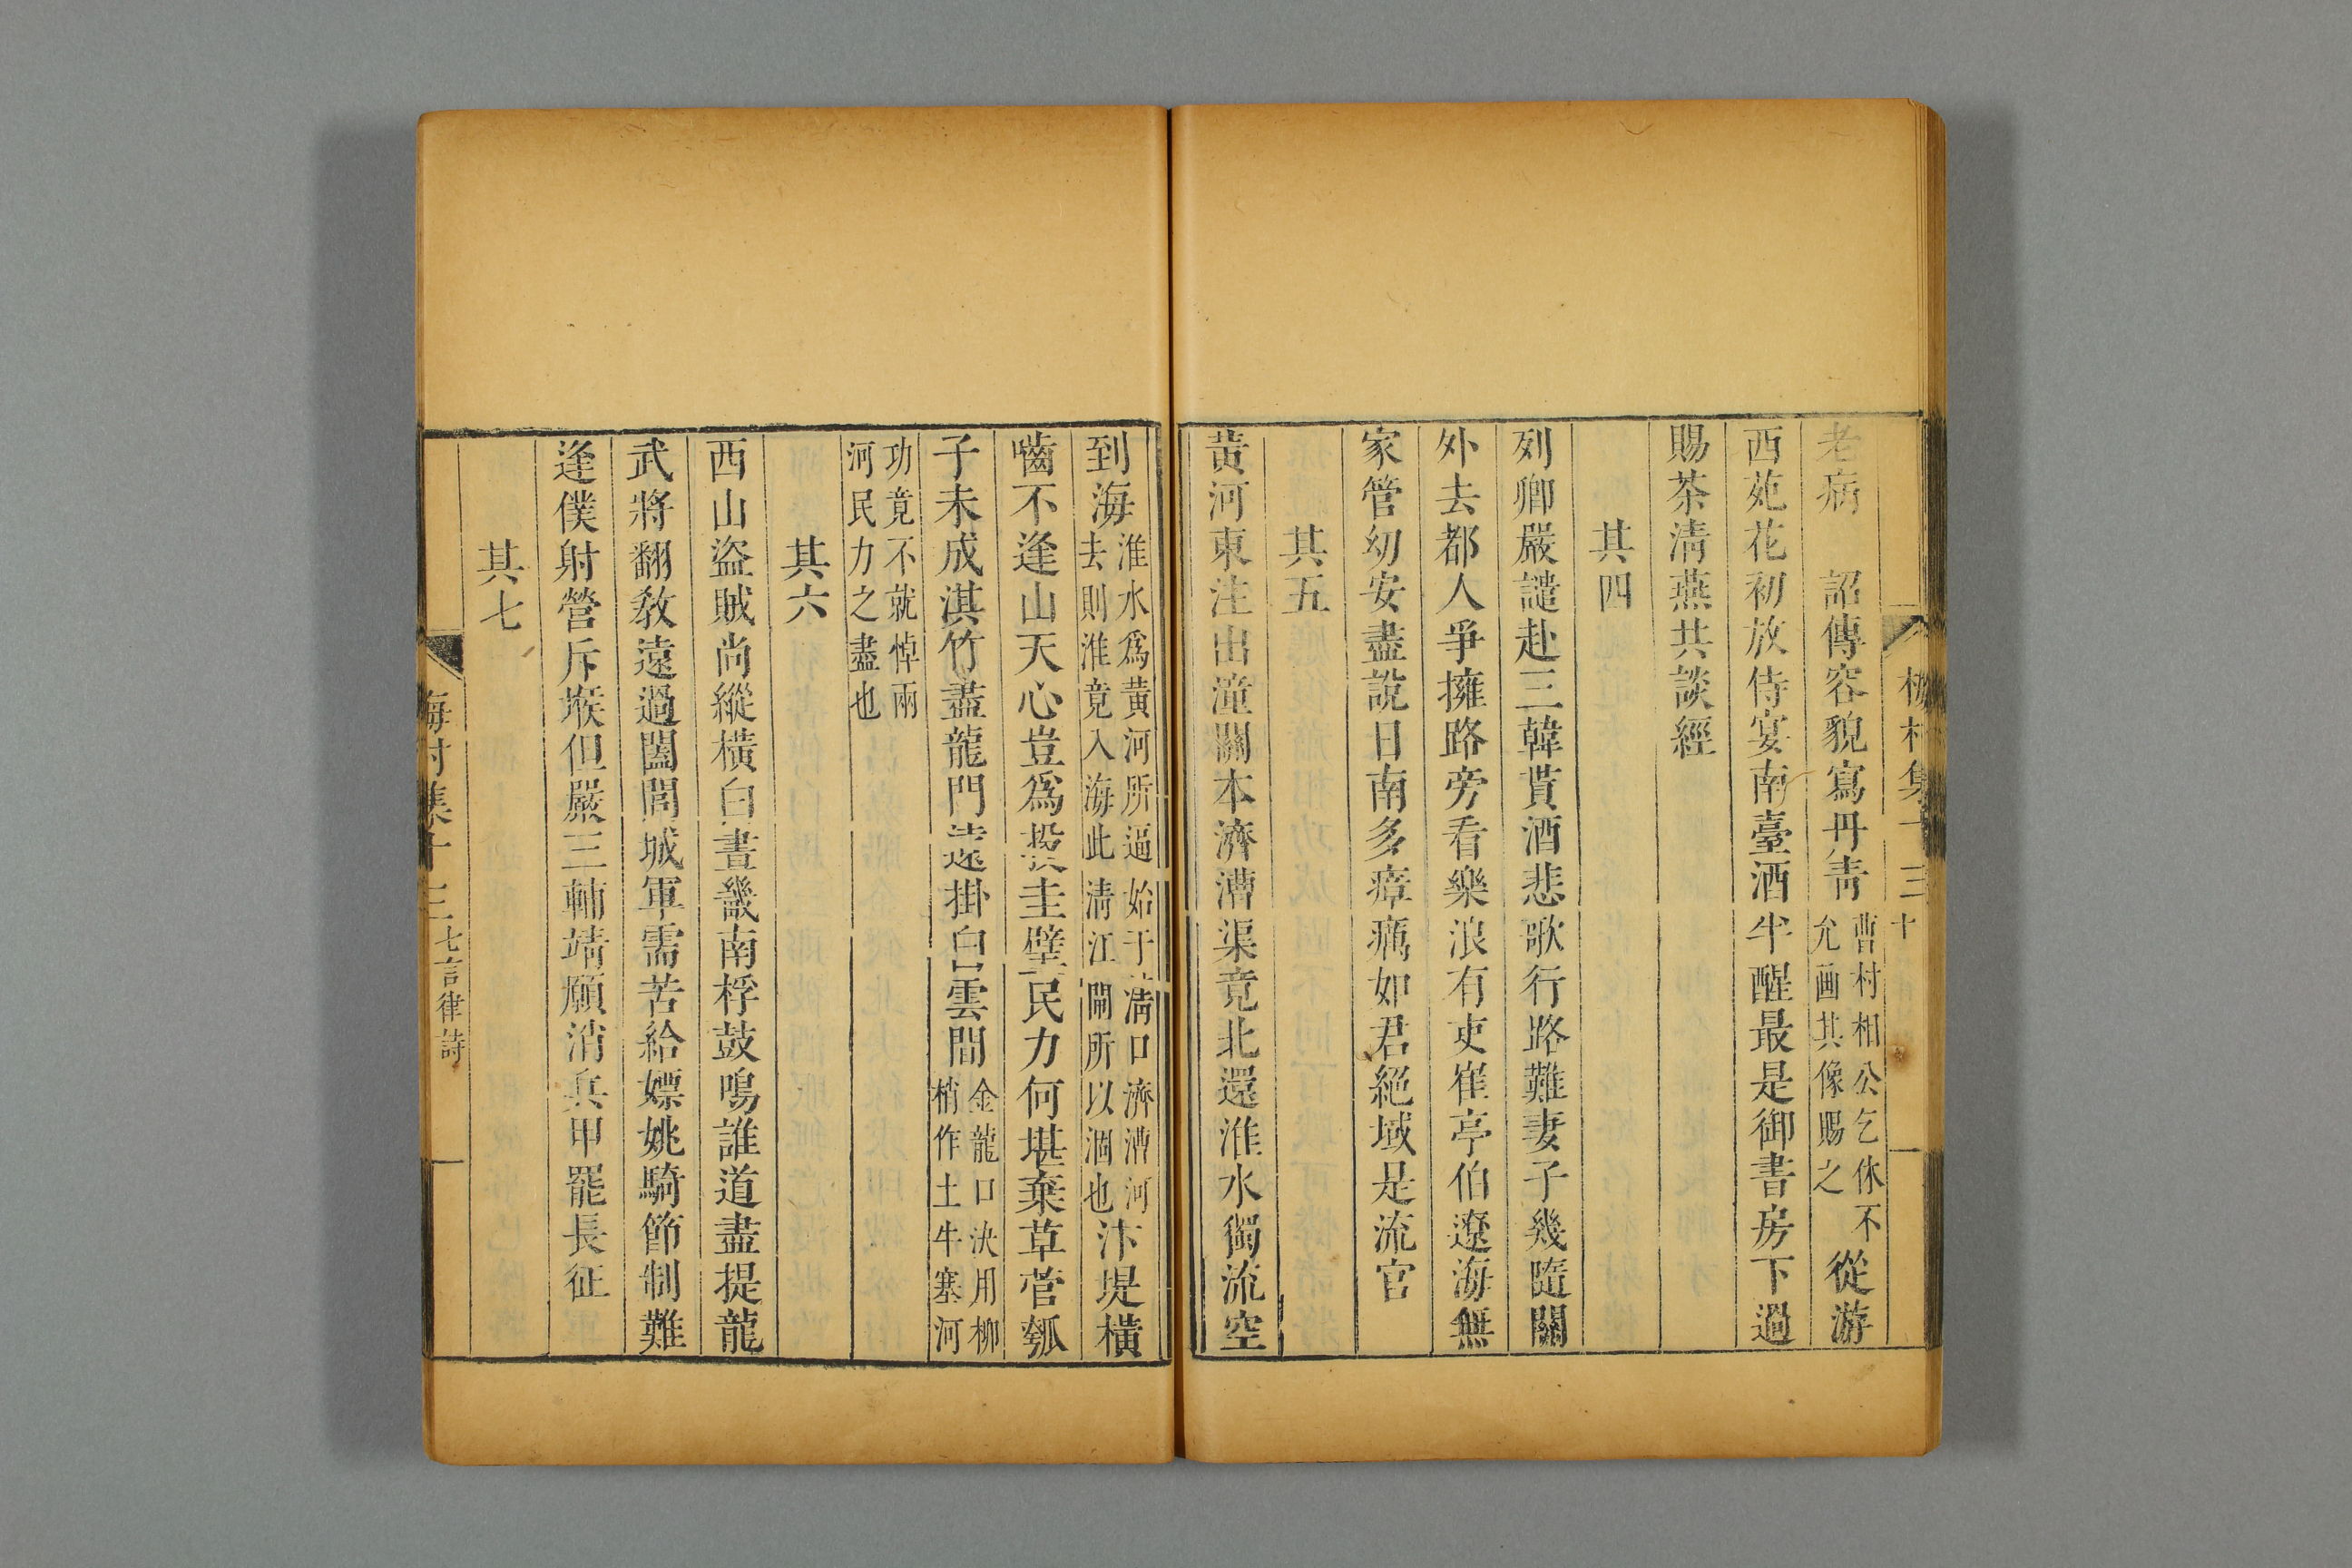 梅村集
三
十
老病　詔傳容貌寫丹青曹村相公乞休不允画其像賜之從游
西苑花初放侍宴南臺酒半醒最是御書房下過
賜茶清燕共談經
其四
列卿嚴譴赴三韓貰酒悲歌行路難妻子幾隨關
外去都人爭擁路旁看樂浪有吏崔亭伯遼海無
家管幼安盡說日南多瘴癘如君絕域是流官
其五
黃河東注出潼關本濟漕渠竟北還淮水獨流空
到海淮水爲黃河所逼始于清口濟漕河去則淮竟入海此清江閘所以涸也汴堤橫
嚙不逢山天心豈爲投圭璧民力何堪棄草菅瓠
子未成淇竹盡龍門遠掛白雲間金龍口決用柳梢作土牛塞河
功竟不就悼兩河民力之盡也
其六
西山盜賊尚縱橫白晝畿南桴鼓鳴誰道盡提龍
武將翻教遠過闔閭城軍需苦給嫖姚騎節制難
逢僕射營斥堠但嚴三輔靖願消兵甲罷長征
其七
梅村集十三七言律詩